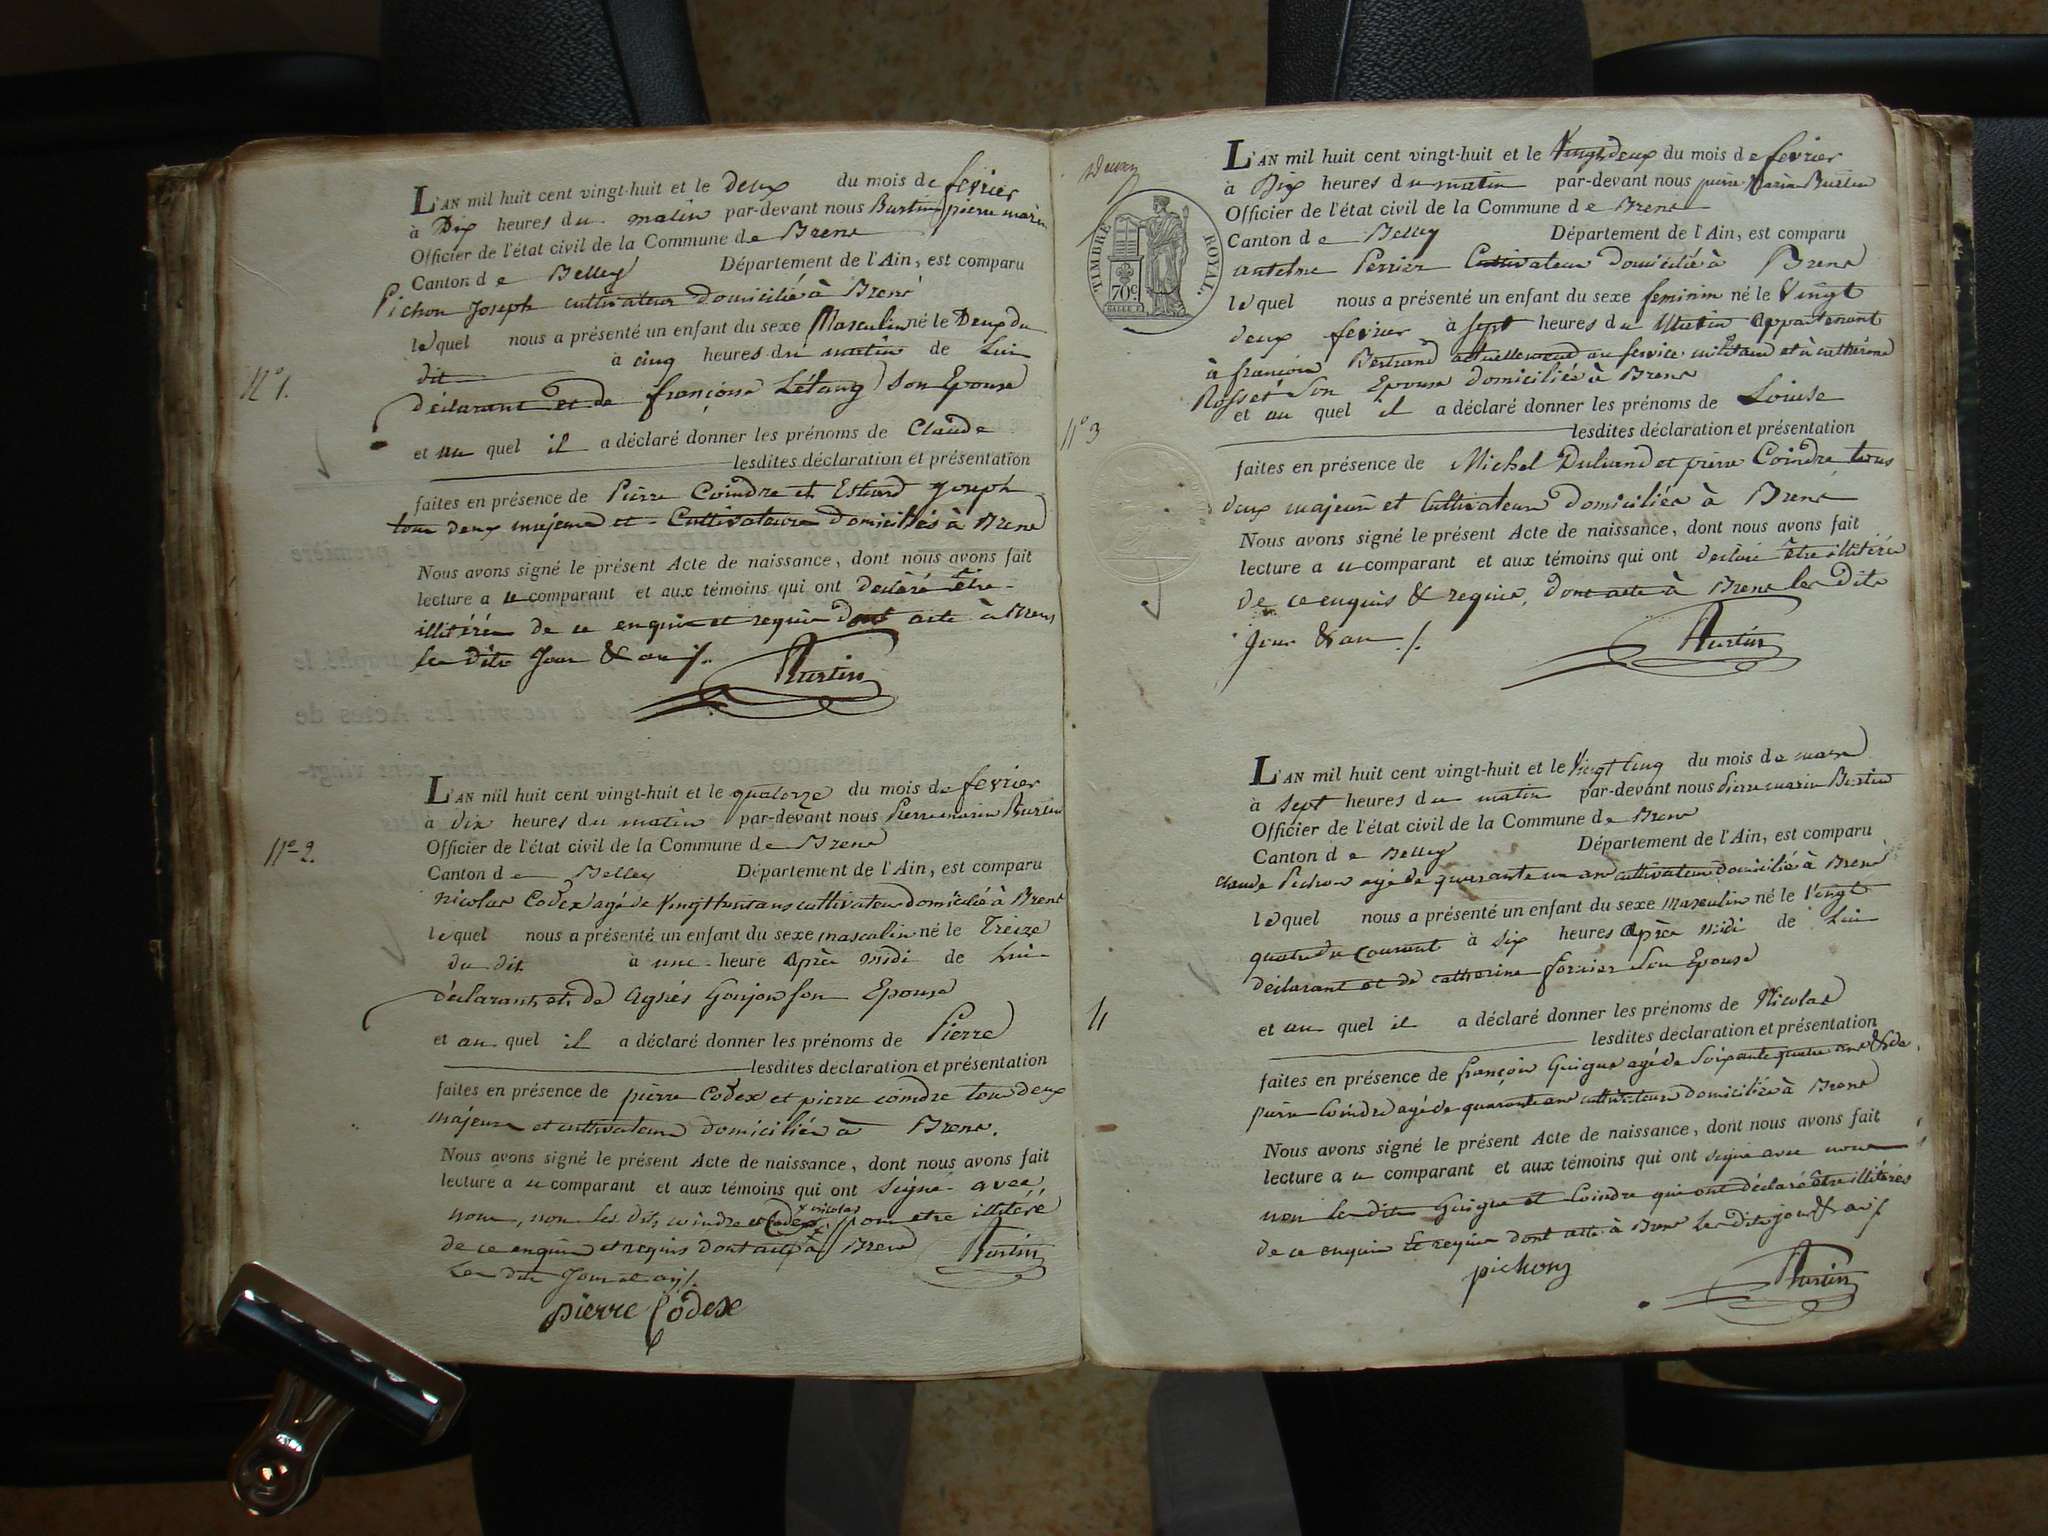 N° 1.
L'AN mil huit cent vingt-huit et le deux du mois de fevrier
à Dix heures du matin par-devant nous Burtin pierre marin
Officier de l'état civil de la Commune de Brens
Canton de Belley Département de l'Ain, est comparu
Pichon Joseph cultivateur domicilié à Brens
lequel nous a présenté un enfant du sexe Masculin né le Deux du
dit à cinq heures du matin de Lui
déclarant et de françoise Létang son Epouse
et au quel il a déclaré donner les prénoms de Claude
lesdites déclaration et présentation
faites en présence de Pierre Coindre et Joseph
tous deux majeurs et Cultivateurs domiciliés à Brens
Nous avons signé le présent Acte de naissance, dont nous avons fait
lecture au comparant et aux témoins qui ont declaré être
illitérés de ce enquis et requis dont acte à Brens
les dits Jour & an ./.
Burtin
N° 2.
L'AN mil huit cent vingt-huit et le quatorze du mois de fevrier
à dix heures du matin par-devant nous Pierre marin Burtin
Officier de l'état civil de la Commune de Brens
Canton de Belley Département de l'Ain, est comparu
nicolas Codex agé de Vingt huit ans cultivateur domicilié à Brens
lequel nous a présenté un enfant du sexe masculin né le Treize
du dit à une heure Après midi de Lui
déclarant et de Agnés Goujon son Epouse
et au quel il a déclaré donner les prénoms de Pierre
lesdites déclaration et présentation
faites en présence de pierre Codex et pierre coindre tous deux
majeurs et cultivateurs domiciliés à Brens.
Nous avons signé le présent Acte de naissance, dont nous avons fait
lecture au comparant et aux témoins qui ont signé avec
x nicolas
nous, non les dits coindre et Codex x pour etre illitéré
de ce enquis et requis dont acte à Brens
Les dits Jour et an ./.
Burtin
pierre Codex
TIMBRE ROYAL.
70 c.
N° 3
L'AN mil huit cent vingt-huit et le Vingt deux du mois de fevrier
à Dix heures du matin par-devant nous pierre Marin Burtin
Officier de l'état civil de la Commune de Brens
Canton de Belley Département de l'Ain, est comparu
antelme Perrier Cultivateur domicilié à Brens
lequel nous a présenté un enfant du sexe feminin né le Vingt
deux fevrier à sept heures du Matin appartenant
à françois Bertrand actuellement au service militaire et à cathérine
Rosset son Epouse domiciliés à Brens
et au quel il a déclaré donner les prénoms de Louise
lesdites déclaration et présentation
faites en présence de Michel Durand et pierre Coindre tous
deux majeurs et Cultivateurs domiciliés à Brens
Nous avons signé le présent Acte de naissance, dont nous avons fait
lecture au comparant et aux témoins qui ont declaré être illitérés
de ce enquis & requis, dont acte à Brens les dits
Jour & an ./.
Burtin
4
L'AN mil huit cent vingt-huit et le Vingt cinq du mois de mars
à sept heures du matin par-devant nous Pierre marin Burtin
Officier de l'état civil de la Commune de Brens
Canton de Belley Département de l'Ain, est comparu
claude Pichon agé de quarante un ans cultivateur domicilié à Brens
lequel nous a présenté un enfant du sexe masculin né le Vingt
quatre du Courant à six heures Après Midi de Lui
déclarant et de catherine fornier Son Epouse
et au quel il a déclaré donner les prénoms de Nicolas
lesdites déclaration et présentation
faites en présence de françois Guigue agé de Soixante quatre ans & de
pierre Coindre agé de quarante ans cultivateurs domiciliés à Brens
Nous avons signé le présent Acte de naissance, dont nous avons fait
lecture au comparant et aux témoins qui ont signé avec nous
non les dits Guigue et Coindre qui ont déclaré être illitérés
de ce enquis Et requis dont acte à Brens les dits jour & an ./.
pichon
Burtin